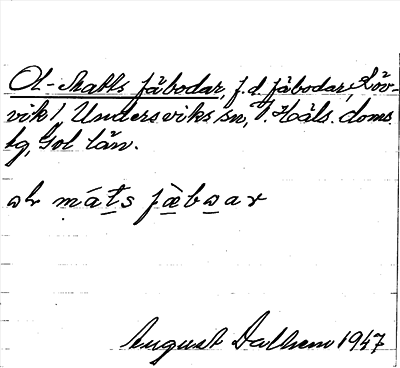 Ol-Matts fäbodar, f. d. fäbodar, Röv-
vik, Undersviks sn, V. Häls. doms.
tg, Gvl län.
máts fæ̀b ar
August Dalhem 1947